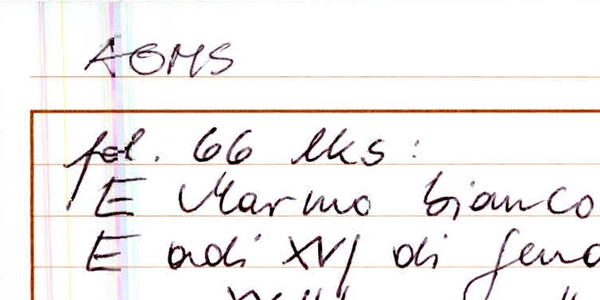 AOMS
fol. 66 lks:
E Marmo bianco
E adi XVI di